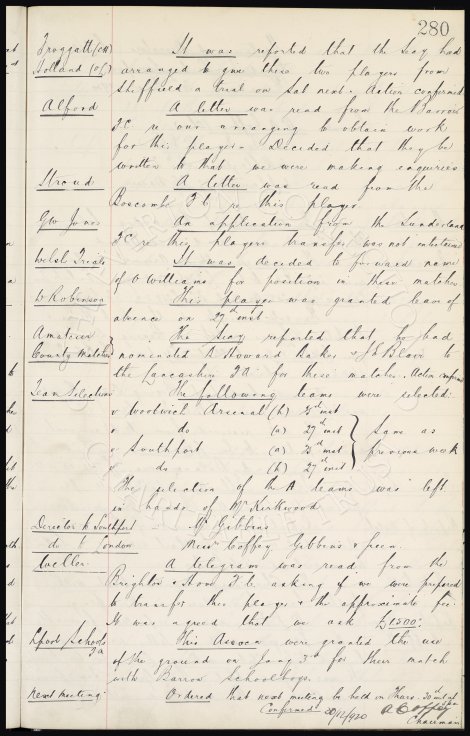 280
Froggatt (CH) It was reported that the Secy had
Holland (of) arranged to give these two players from
Sheffield a trial on Sat next. Action confirmed
Alford A letter was read from the Barrow
FC re our arranging to obtain work
for this player. Decided that they be
written to that we were making enquiries
Stroud A letter was read from the
Boscombe F.C. re this player
Geo Jones An application from the Sunderland
FC re this players transfer was not entertained
Welsh Trials It was decided to forward name
of O Williams for position in these matches
D Robinson This player was granted leave of
absence on 27th inst
Amateur The Secy reported that he had
County Matches nominated A Howard Baker &
the Lancashire FA for these matches. Action confirmed
Team Selections The following teams were selected:
v Woolwich Arsenal (h) inst
v do (a) 27th inst same as
v Southport (a) inst previous week
v do (h) 27th inst
The selection of the A teams was left
in hands of Mr Kirkwood
Director to Southport Mr Gibbins
do to London Messrs Coffey Gibbins & Green
Woller. A telegram was read from the
Brighton & Hove F.C. asking if we were prepared
to transfer this player & the approximate fee.
It was agreed that we ask £1500:
Lpool Schools This Assocn were granted the use
of the ground on Jany 3rd for their match
with Barrow Schoolboys.
Next meeting: Ordered that next meeting be held on Thurs. 30th inst at
Confirmed 20/12/1920
Chairman